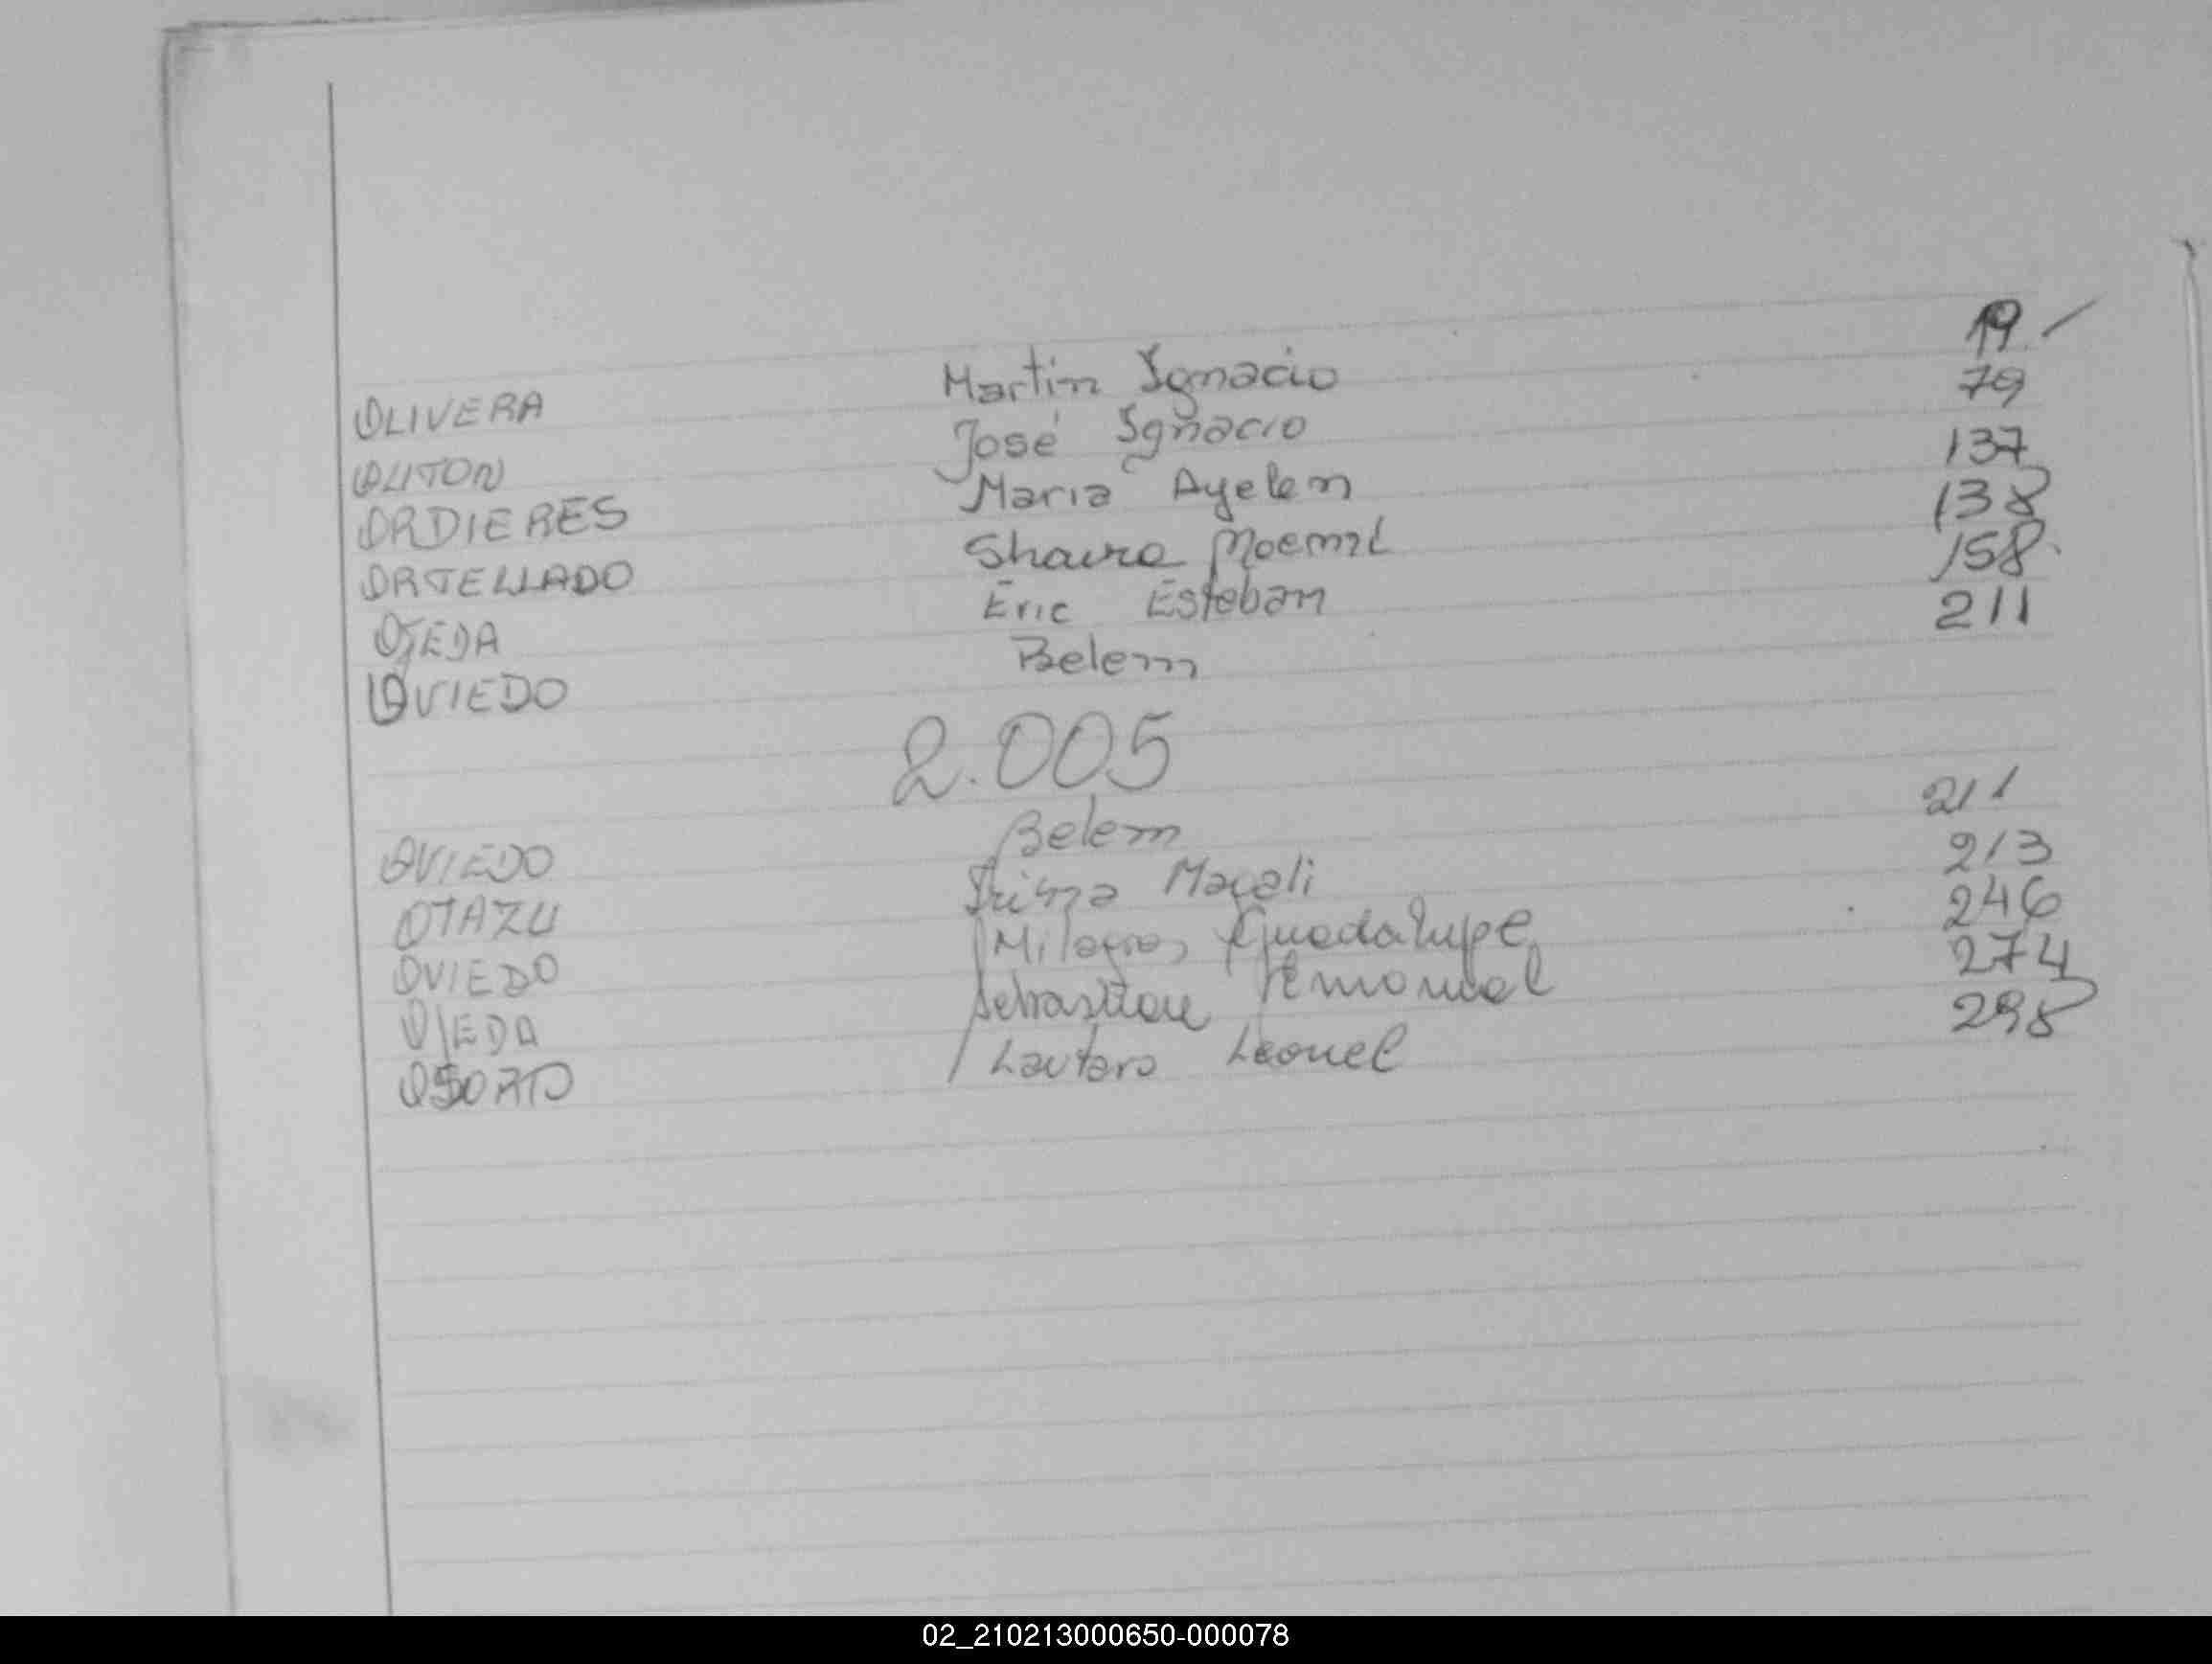 OLIVERA Martin Ignacio 19
OLITON José Ignacio 79
ORDIERES Maria Ayelen 137
ORTELLADO Noemi 138
OJEDA Eric Esteban 158
OVIEDO Belem 211
2.005
OVIEDO Belem 211
OTAZU Magali 213
OVIEDO Milagros Guadalupe 246
OJEDA Sebastian Emanuel 274
Lautaro Leonel 298
02_210213000650-000078